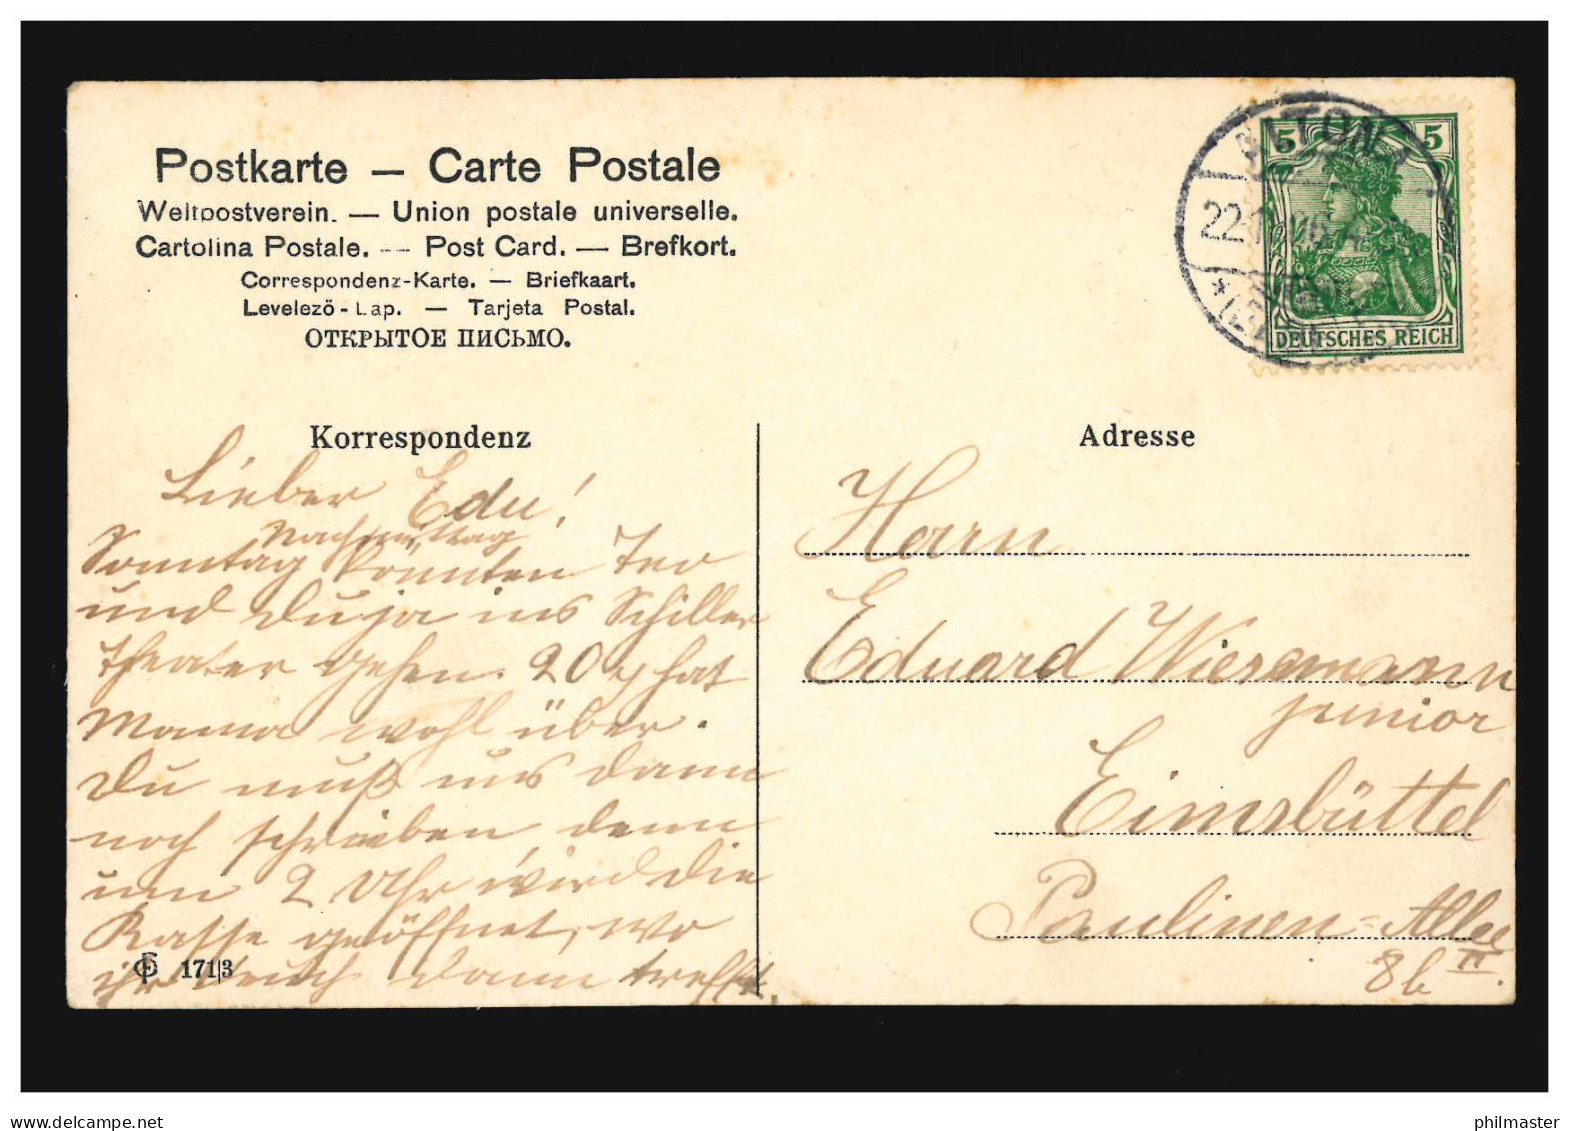 Postkarte — Carte Postale
Weltpostverein. — Union postale universelle.
Cartolina Postale. — Post Card. — Brefkort.
Correspondenz-Karte. — Briefkaart.
Levelező - Lap. — Tarjeta Postal.
ОТКРЫТОЕ ПИСЬМО.
5 5
DEUTSCHES REICH
ALTONA
22.1
Korrespondenz
Lieber Edu!
Nachmittag
Sonntag könnten Teo
und Du ja ins Schiller
theater gehen. 20 hat
Mama wohl über.
Du mußt uns dann
noch schreiben, denn
um 2 Uhr wird die
Kasse geöffnet, wo
ihr Euch dann trefft.
171/3
Adresse
Herrn
Eduard Wiesemann
junior
Eimsbüttel
Paulinen-Allee
8b II.
delcampe.net
philmaster